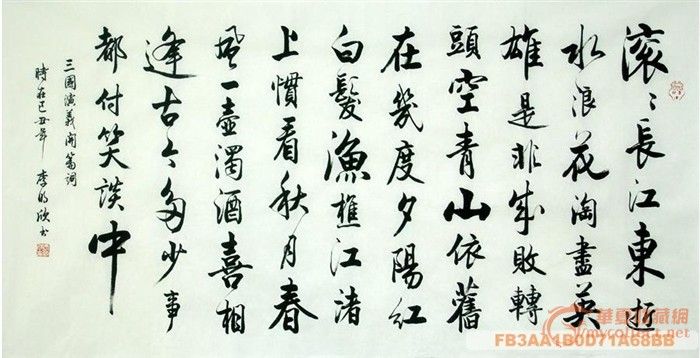 滚〻長江東逝
水浪花淘盡英
雄是非成敗轉
頭空青山依舊
在幾度夕陽紅
白髮漁樵江渚
上慣看秋月春
風一壺濁酒喜相
逢古今多少事
都付笑談中
三國演義開篇詞
時在己丑年 李
華夏收藏網
mycollect.net
FB3AA1B0D71A68BB